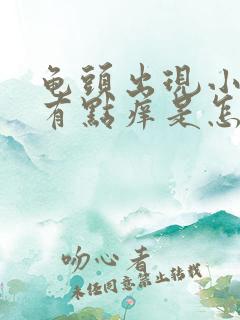 龟頭出現小
有點痒是怎
吻心者
未任同意禁止转载